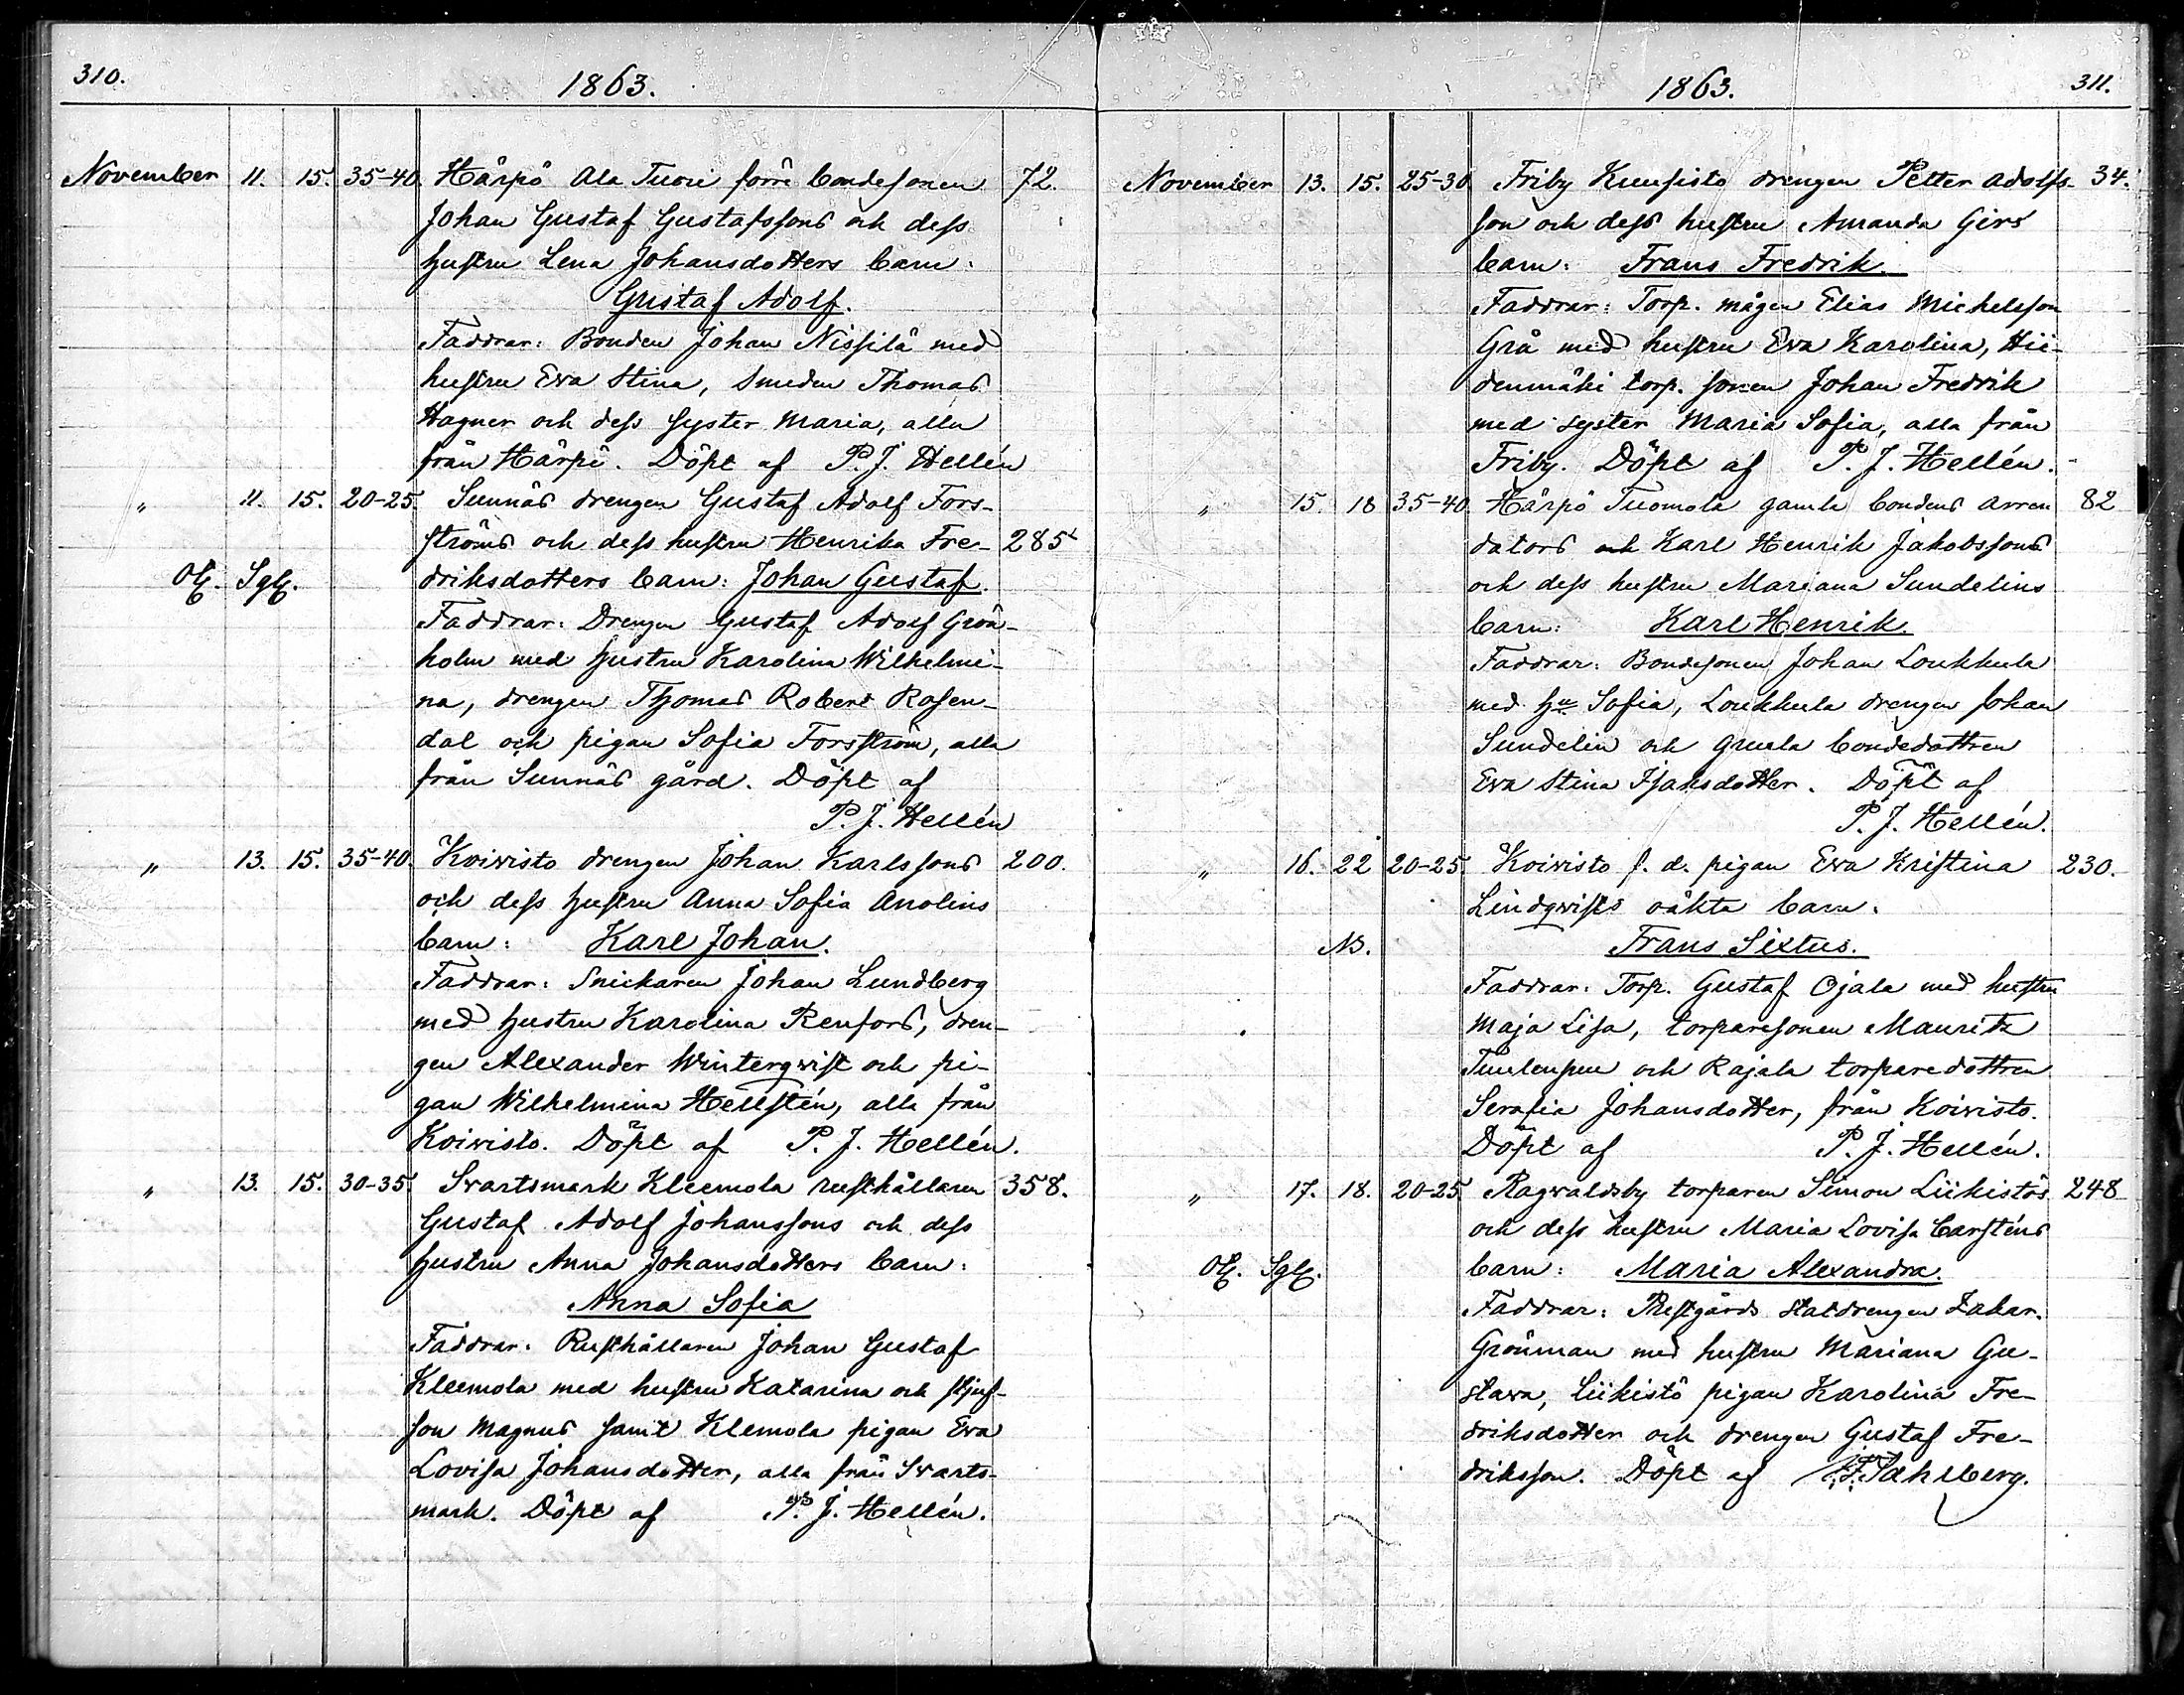 310.
1863.
November 11. 15. 35-40. Hårpö Ala Tuori förre bondesonen 72.
Johan Gustaf Gustafssons och dess
hustru Lena Johansdotters barn:
Gustaf Adolf.
Faddrar: Bonden Johan Nissilä med
hustru Eva Stina, Smeden Thomas
Hagner och dess syster Maria, alla
från Härpö. Döpt af P. J. Hellén
" 11. 15. 20-25. Sunnäs drengen Gustaf Adolf Fors-
ströms och dess hustru Henrika Fre- 285
driksdotters barn: Johan Gustaf.
Faddrar: Drengen Gustaf Adolf Grön-
holm med hustru Karolina Wilhelmi-
na, drengen Thomas Robert Rosen-
dal och pigan Sofia Forsström, alla
från Sunnäs gård. Döpt af
P. J. Hellén
" 13. 15. 35-40. Koivisto drengen Johan Karlssons 200.
och dess hustru Anna Sofia Anolins
barn: Karl Johan.
Faddrar: Snickaren Johan Lundberg
med hustru Karolina Renfors, dren-
gen Alexander Winterqvist och pi-
gan Wilhelmina Hellstén, alla från
Koivisto. Döpt af P. J. Hellén.
" 13. 15. 30-35. Svartsmark Kleemola rusthållaren 358.
Gustaf Adolf Johanssons och dess
hustru Anna Johansdotters barn:
Anna Sofia
Faddrar: Rusthållaren Johan Gustaf
Kleemola med hustru Katarina och stjuf-
son Magnus samt Klemola pigan Eva
Lovisa Johansdotter, alla från Svarts-
mark. Döpt af P. J. Hellén.
1863.
311.
November 13. 15. 25-30 Friby Kuusisto drengen Petter Adolfs- 34.
son och dess hustru Amanda Girs
barn: Frans Fredrik.
Faddrar: Torp. mågen Elias Michelsson
Grå med hustru Eva Karolina, Hii-
denmäki torp. sonen Johan Fredrik
med syster Maria Sofia, alla från
Friby. Döpt af P. J. Hellén.
" 15. 18 35-40. Härpö Tuomola gamla bondens arren 82
dators och Karl Henrik Jakobssons
och dess hustru Mariana Sundelins
barn: Karl Henrik.
Faddrar: Bondesonen Johan Loukkula
med hu Sofia, Loukkula drengen Johan
Sundelin och Gruula bondedottren
Eva Stina Isaksdotter. Döpt af
P. J. Hellén.
" 16. 22 20-25. Koivisto f. d. pigan Eva Kristina 230.
Lindqvists oäkta barn:
NB. Frans Sixtus.
Faddrar: Torp. Gustaf Ojala med hustru
Maja Lisa, torparesonen Mauritz
och Rajala torparedottren
Serafia Johansdotter, från Koivisto.
Döpt af P. J. Hellén.
" 17. 18. 20-25. Ragvaldsby torparen Simon Liikistös 248
och dess hustru Maria Lovisa Carsténs
barn: Maria Alexandra.
Faddrar: Prestgårds statdrengen Zakar.
Grönman med hustru Mariana Gu-
stava, Liikistö pigan Karolina Fre-
driksdotter och drengen Gustaf Fre-
driksson. Döpt af